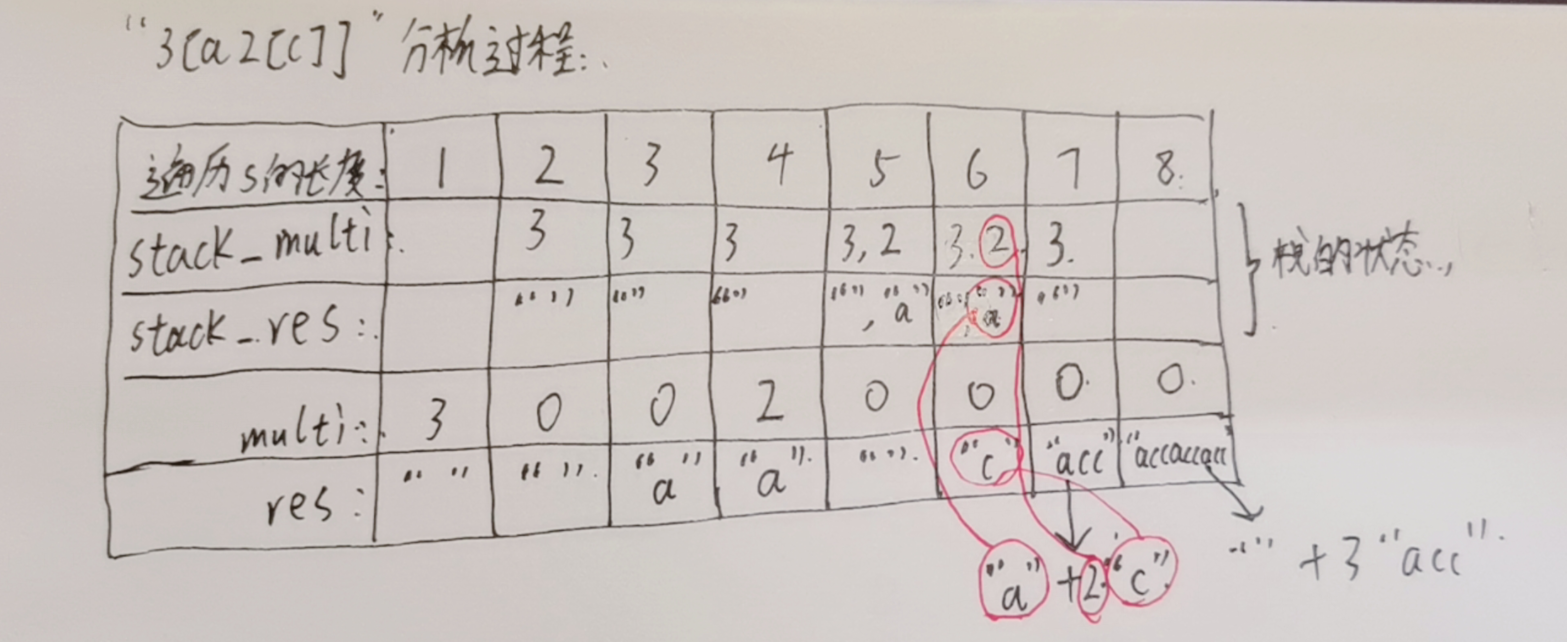 “3[a2[c]]”分析过程:
遍历s的长度: 1 2 3 4 5 6 7 8.
stack_multi: 3 3 3 3,2 3.2 3.
栈的状态.,
stack_res: “” “” “” “”,“a” “”,“a” “”
multi: 3 0 0 2 0 0 0. 0.
res: “” “”. “a” “a”. “”. “c” “acc” “accaccacc”
“a”+2“c” “”+3“acc”.